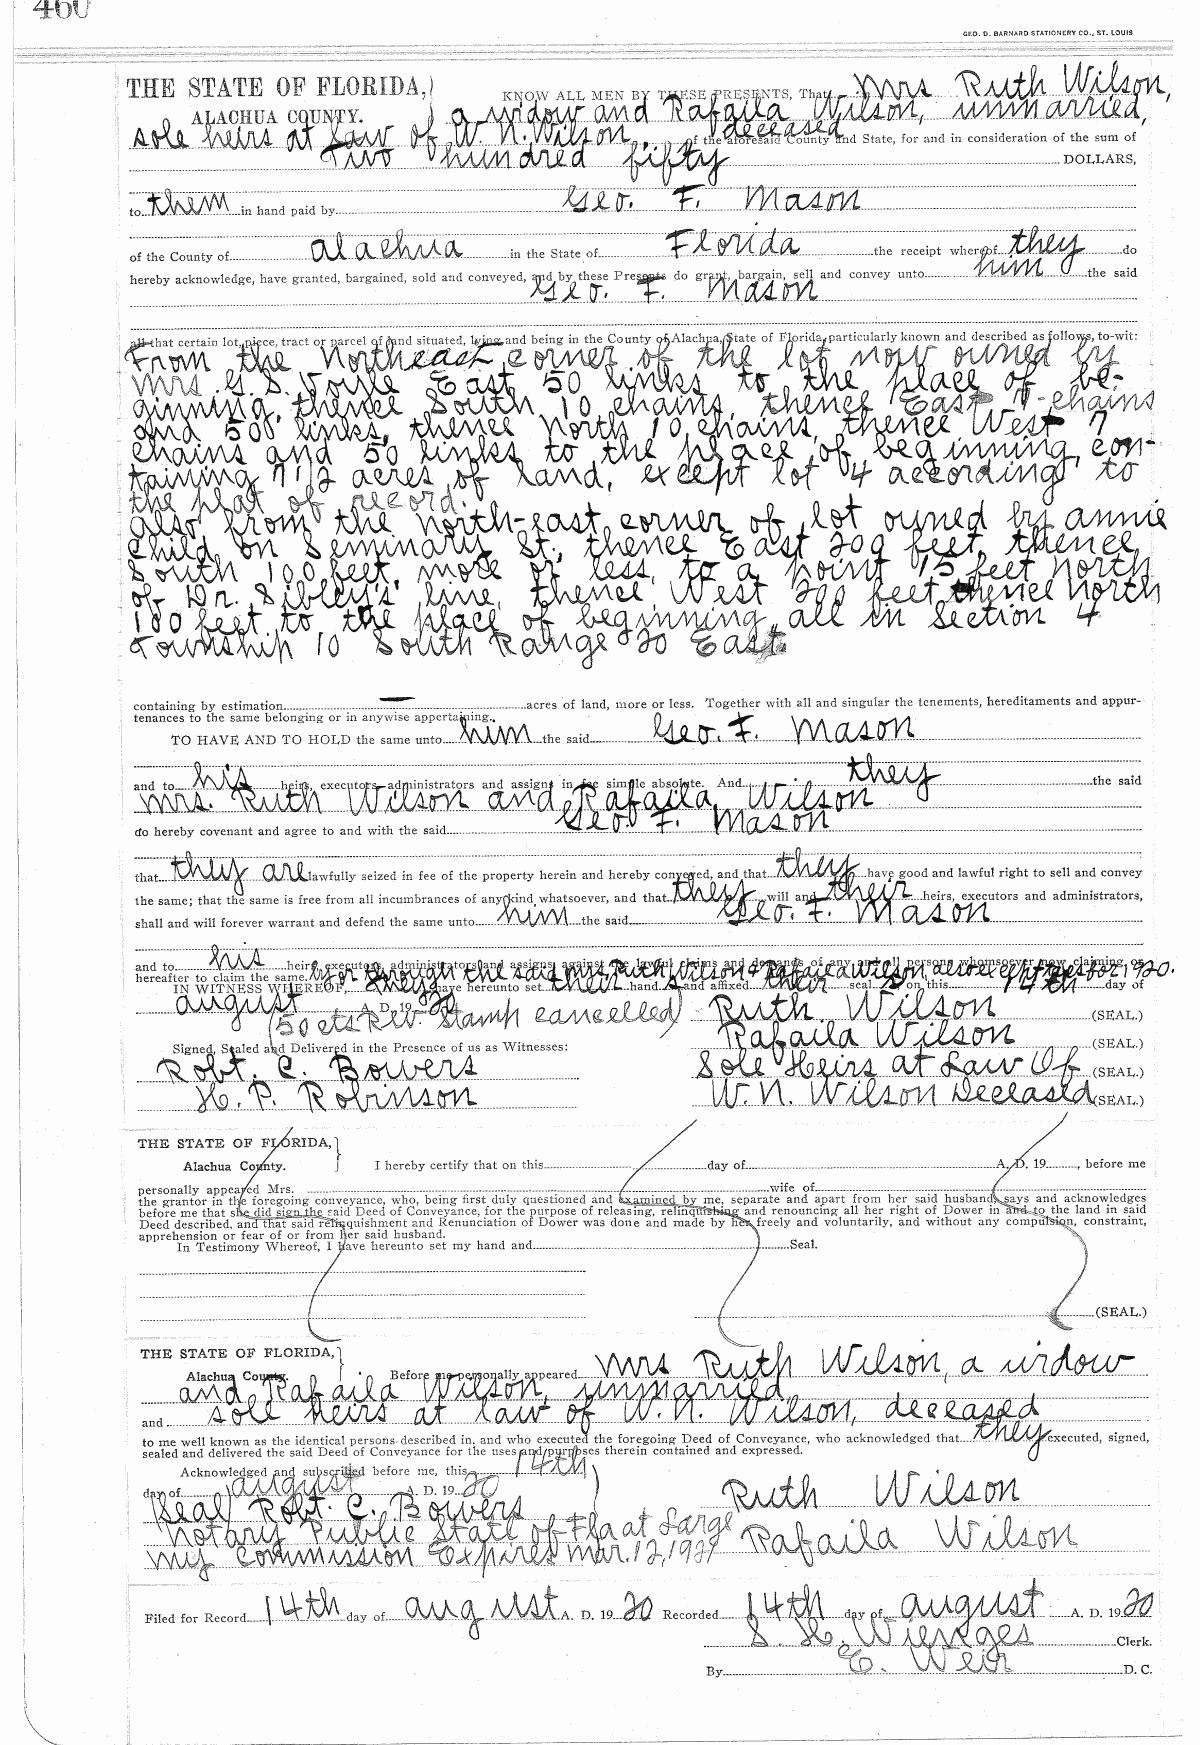 460
GEO. D. BARNARD STATIONERY CO., ST. LOUIS
THE STATE OF FLORIDA,)
KNOW ALL MEN BY THESE PRESENTS, That Mrs Ruth Wilson,
ALACHUA COUNTY. a widow and Rafaila Wilson, unmarried,
sole heirs at law of W. N. Wilson, deceased of the aforesaid County and State, for and in consideration of the sum of
Two hundred fifty DOLLARS,
to them in hand paid by Geo. F. Mason
of the County of Alachua in the State of Florida the receipt whereof they do
hereby acknowledge, have granted, bargained, sold and conveyed, and by these Presents do grant, bargain, sell and convey unto him the said
Geo. F. Mason
all that certain lot, piece, tract or parcel of land situated, lying and being in the County of Alachua, State of Florida, particularly known and described as follows, to-wit:
From the Northeast corner of the lot now owned by
Mrs. G. S. Voyle East 50 links to the place of be-
ginning, thence South 10 chains, thence East 7 chains
and 50 links, thence North 10 chains, thence West 7
chains and 50 links to the place of beginning, con-
taining 7 1/2 acres of land, except lot 4 according to
the plat of record.
Also from the north-east corner of lot owned by Annie
Child on Seminary St., thence East 200 feet, thence
South 100 feet, more or less, to a point 15 feet North
of Dr. Sibley's line, thence West 200 feet, thence North
100 feet to the place of beginning, all in Section 4
Township 10 South Range 20 East.
containing by estimation — acres of land, more or less. Together with all and singular the tenements, hereditaments and appur-
tenances to the same belonging or in anywise appertaining.
TO HAVE AND TO HOLD the same unto him the said Geo. F. Mason
and to his heirs, executors, administrators and assigns in fee simple absolute. And they the said
Mrs. Ruth Wilson and Rafaila Wilson
do hereby covenant and agree to and with the said Geo. F. Mason
that they are lawfully seized in fee of the property herein and hereby conveyed, and that they have good and lawful right to sell and convey
the same; that the same is free from all incumbrances of any kind whatsoever, and that they will and their heirs, executors and administrators,
shall and will forever warrant and defend the same unto him the said Geo. F. Mason
and to his heirs, executors, administrators and assigns against the lawful claims and demands of any and all persons whomsoever now claiming or
hereafter to claim the same. by or through the said Mrs. Ruth Wilson & Rafaila Wilson, also except taxes for 1920.
IN WITNESS WHEREOF, they have hereunto set their hand s and affixed their seal s on this 14th day of
August A. D. 1920
(50 cts Rev. Stamp cancelled) Ruth Wilson (SEAL.)
Rafaila Wilson (SEAL.)
Signed, Sealed and Delivered in the Presence of us as Witnesses:
Robt. C. Bowers Sole Heirs at Law Of (SEAL.)
H. P. Robinson W. N. Wilson Deceased (SEAL.)
THE STATE OF FLORIDA,
Alachua County. I hereby certify that on this day of A. D. 19 , before me
personally appeared Mrs. wife of
the grantor in the foregoing conveyance, who, being first duly questioned and examined by me, separate and apart from her said husband, says and acknowledges
before me that she did sign the said Deed of Conveyance, for the purpose of releasing, relinquishing and renouncing all her right of Dower in and to the land in said
Deed described, and that said relinquishment and Renunciation of Dower was done and made by her freely and voluntarily, and without any compulsion, constraint,
apprehension or fear of or from her said husband.
In Testimony Whereof, I have hereunto set my hand and Seal.
(SEAL.)
THE STATE OF FLORIDA,
Alachua County. Before me personally appeared Mrs Ruth Wilson, a widow
and Rafaila Wilson, unmarried,
and sole heirs at law of W. N. Wilson, deceased
to me well known as the identical persons described in, and who executed the foregoing Deed of Conveyance, who acknowledged that they executed, signed,
sealed and delivered the said Deed of Conveyance for the uses and purposes therein contained and expressed.
Acknowledged and subscribed before me, this 14th
day of August A. D. 1920
(Seal) Robt. C. Bowers Ruth Wilson
Notary Public State of Fla at Large
Rafaila Wilson
My Commission Expires Mar. 12, 1921
Filed for Record 14th day of August A. D. 1920 Recorded 14th day of August A. D. 1920
S. H. Wienges Clerk.
By E. Weir D. C.